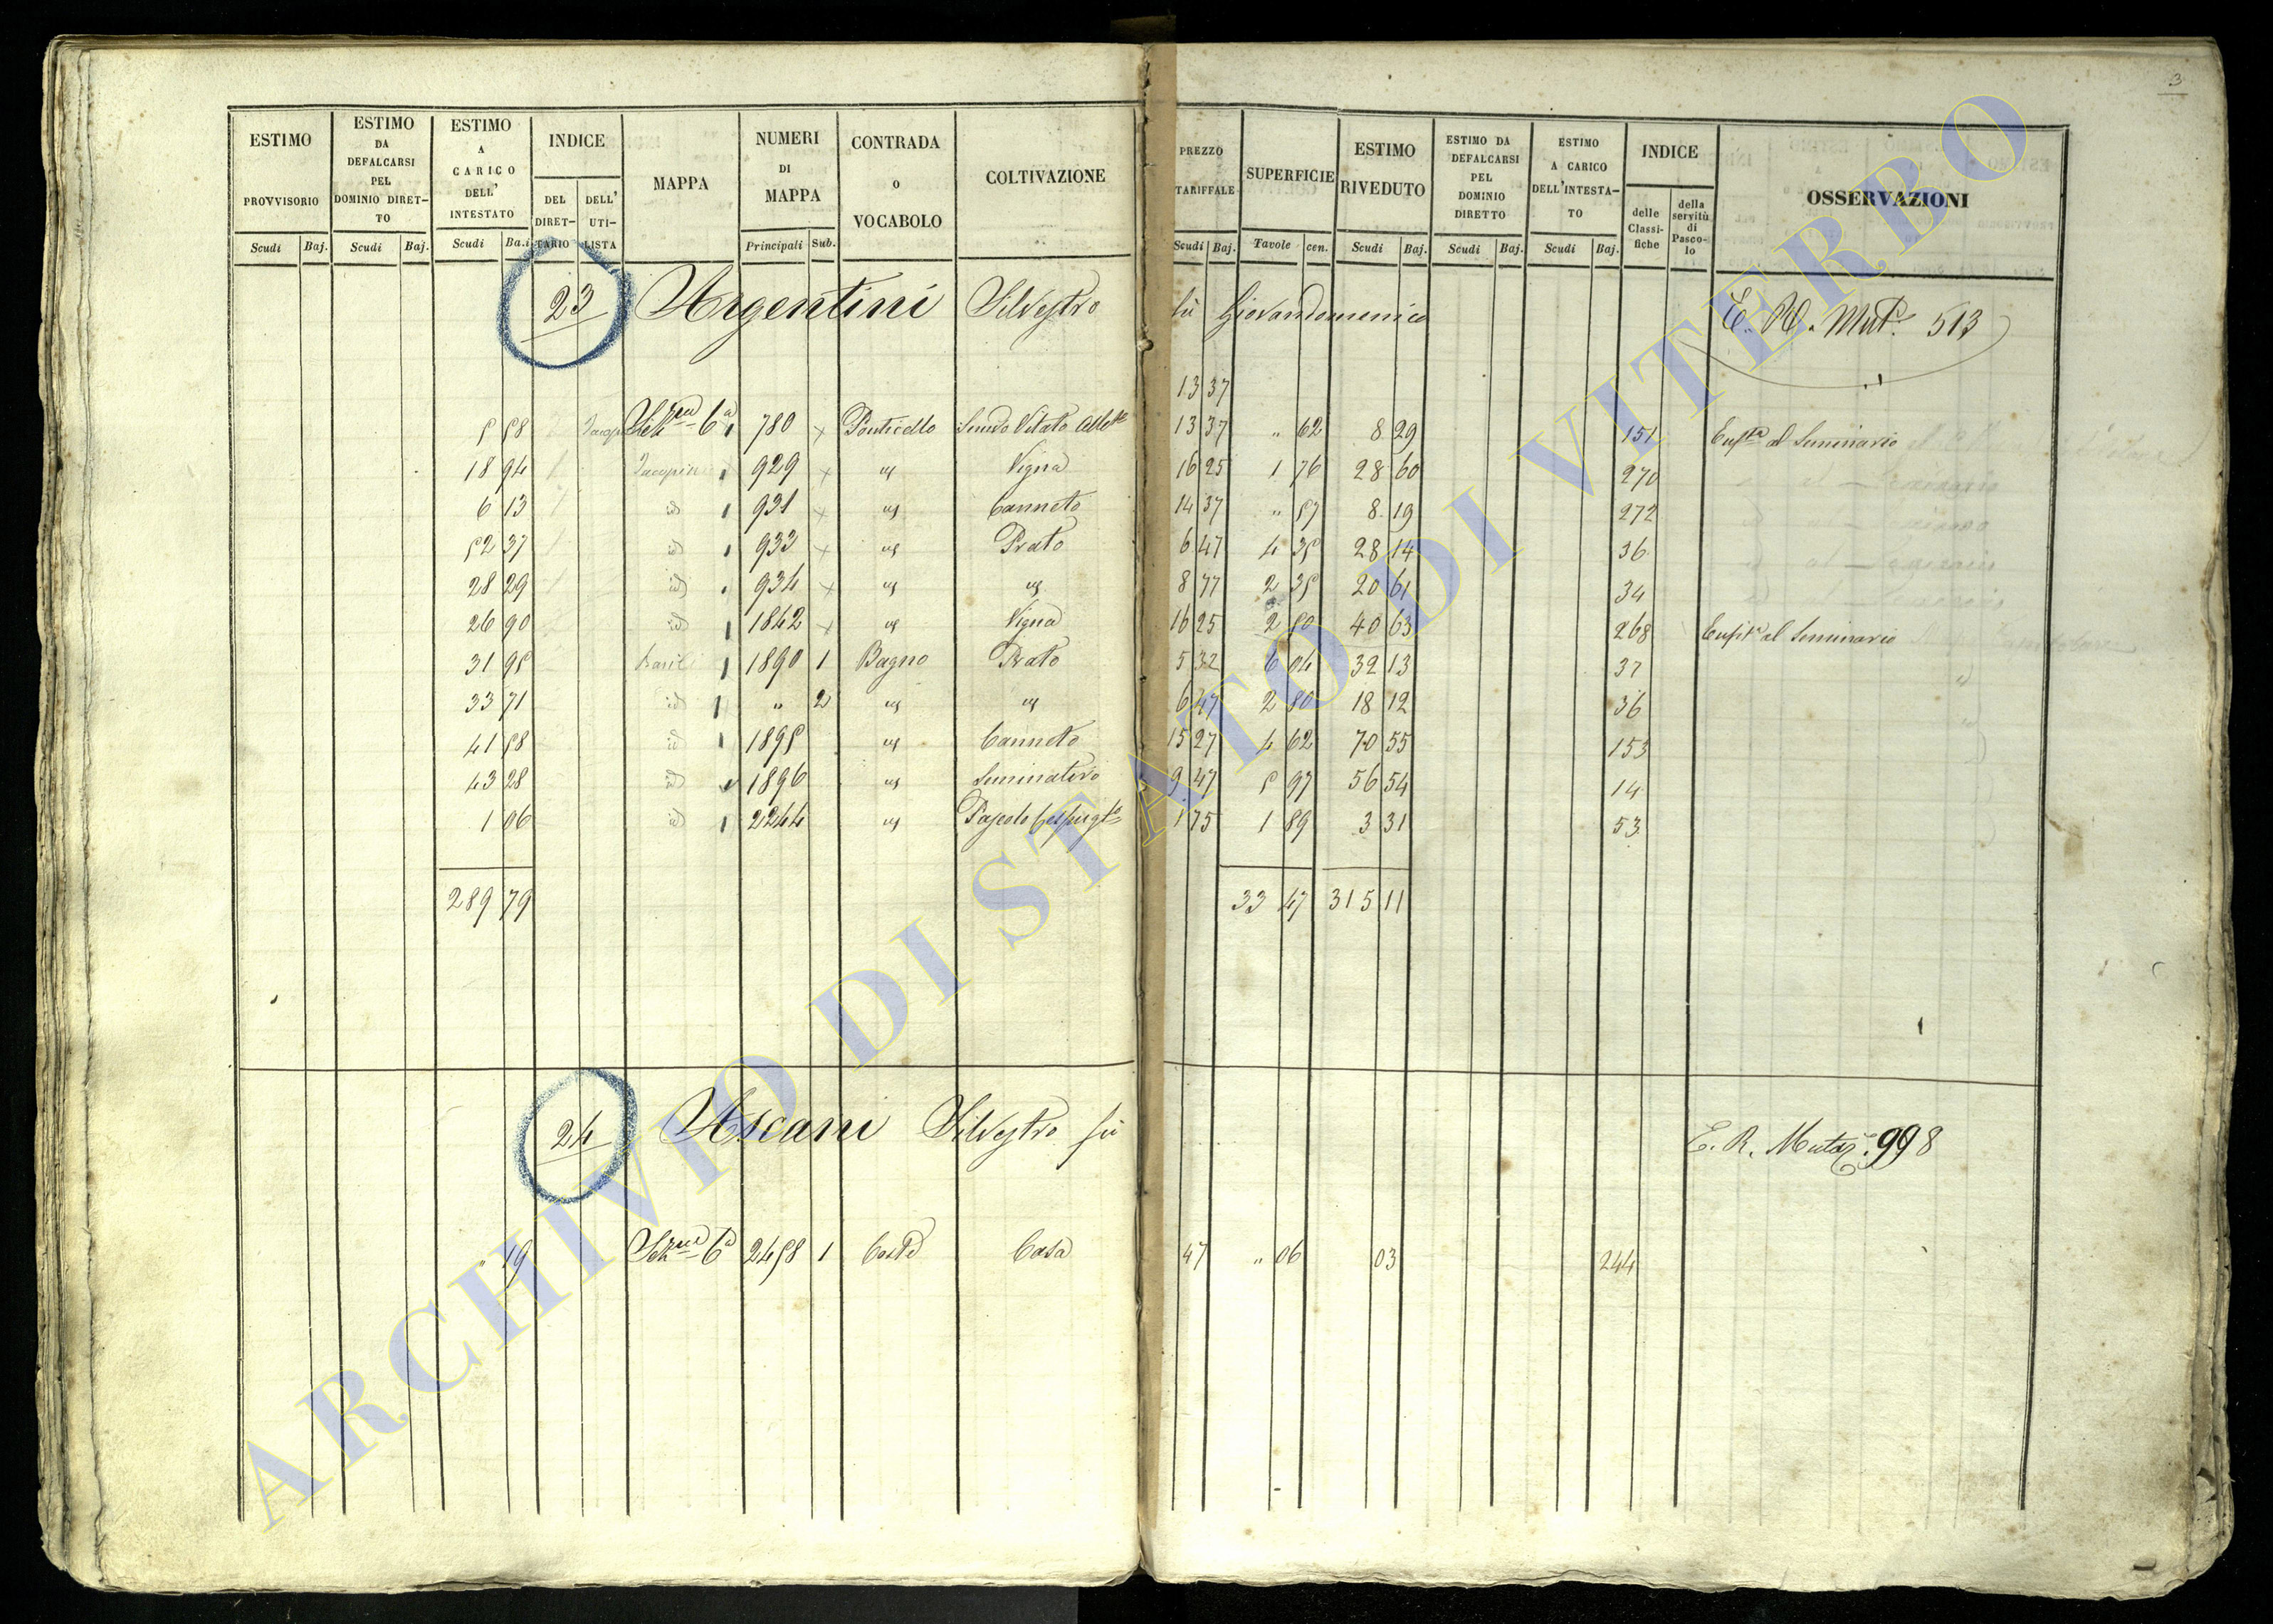 3
ESTIMO PROVVISORIO Scudi Baj. ESTIMO DA DEFALCARSI PEL DOMINIO DIRET-TO Scudi Baj. ESTIMO A CARICO DELL' INTESTATO Scudi Ba.i INDICE DEL DIRET-TARIO DELL' UTI-LISTA MAPPA NUMERI DI MAPPA Principali Sub. CONTRADA O VOCABOLO COLTIVAZIONE PREZZO TARIFFALE Scudi Baj. SUPERFICIE Tavole cen. ESTIMO RIVEDUTO Scudi Baj. ESTIMO DA DEFALCARSI PEL DOMINIO DIRETTO Scudi Baj. ESTIMO A CARICO DELL'INTESTA-TO Scudi Baj. INDICE delle Classi-fiche della servitù di Pasco-lo OSSERVAZIONI
23 Argentini Silvestro fù Giovandomenico E. R. Mut.e 513
13 37
5 58 6a 780 Ponticello Vitato 13 37 " 62 8 29 151 al Seminario
18 94 929 id 16 25 1 76 28 60 270 Vigna
6 13 id 931 id Canneto 14 37 " 57 8 19 272
52 37 id 933 id Prato 6 47 4 35 28 14 36
28 29 id 934 id id 8 77 2 35 20 61 34
26 90 id 1842 id Vigna 16 25 2 50 40 63 268 al Seminario
31 95 1890 1 Bagno Prato 5 32 6 04 32 13 37
33 71 id " 2 id id 6 47 2 80 18 12 36
41 58 id 1895 id Canneto 15 27 4 62 70 55 153
43 28 id 1896 id Seminativo 9 47 5 97 56 54 14
1 06 id 2244 id Pascolo 1 75 1 89 3 31 53
289 79 33 47 315 11
24 Ascani Silvestro fù E. R. Mutaz. 998
" 19 6a 2458 1 Casa 47 " 06 03 244
ARCHIVIO DI STATO DI VITERBO